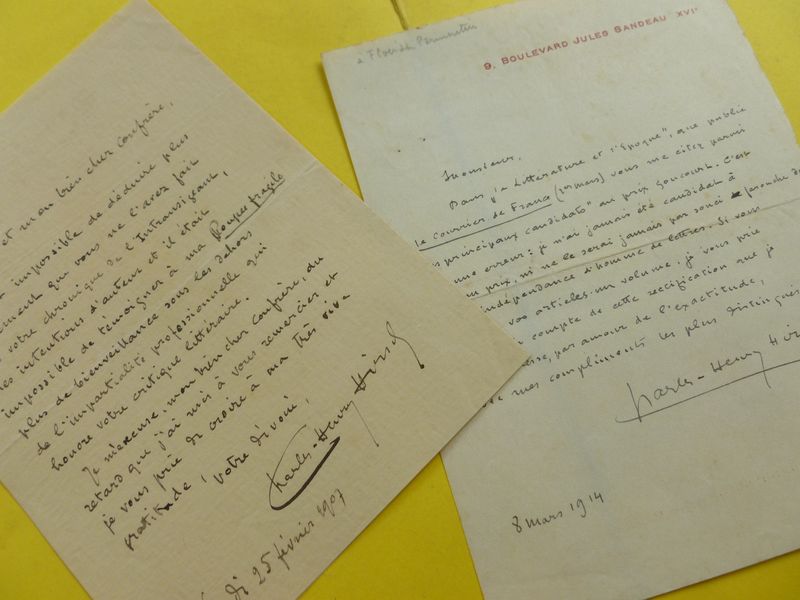 et mon bien cher confrère,
impossible de déduire plus
ment que vous ne l'avez fait
votre chronique de l'Intransigeant,
es intentions d'auteur et il était
impossible de témoigner à ma Poupée fragile
plus de bienveillance sous les dehors
de l'impartialité professionnelle qui
honore votre critique littéraire.
Je m'excuse, mon bien cher confrère, du
retard que j'ai mis à vous remercier et
je vous prie de croire à ma très vive
gratitude,
votre dévoué,
Charles-Henry Hirsch
di 25 février 1907
à Florian Parmentier
9, BOULEVARD JULES SANDEAU XVIe
Monsieur,
Dans "la Littérature et l'Epoque", que publie
le Courrier de France (1er mars) vous me citez parmi
es principaux candidats" au prix Goncourt. C'est
une erreur : je n'ai jamais été candidat à
un prix, ni ne le serai jamais par souci farouche de
indépendance d'homme de lettres. Si vous
vos articles en volume, je vous prie
compte de cette rectification que je
par amour de l'exactitude,
mes compliments les plus distingués
Charles-Henry Hir
8 mars 1914